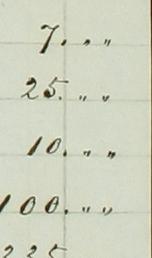 7. „ „
25. „ „
10. „ „
100. „ „